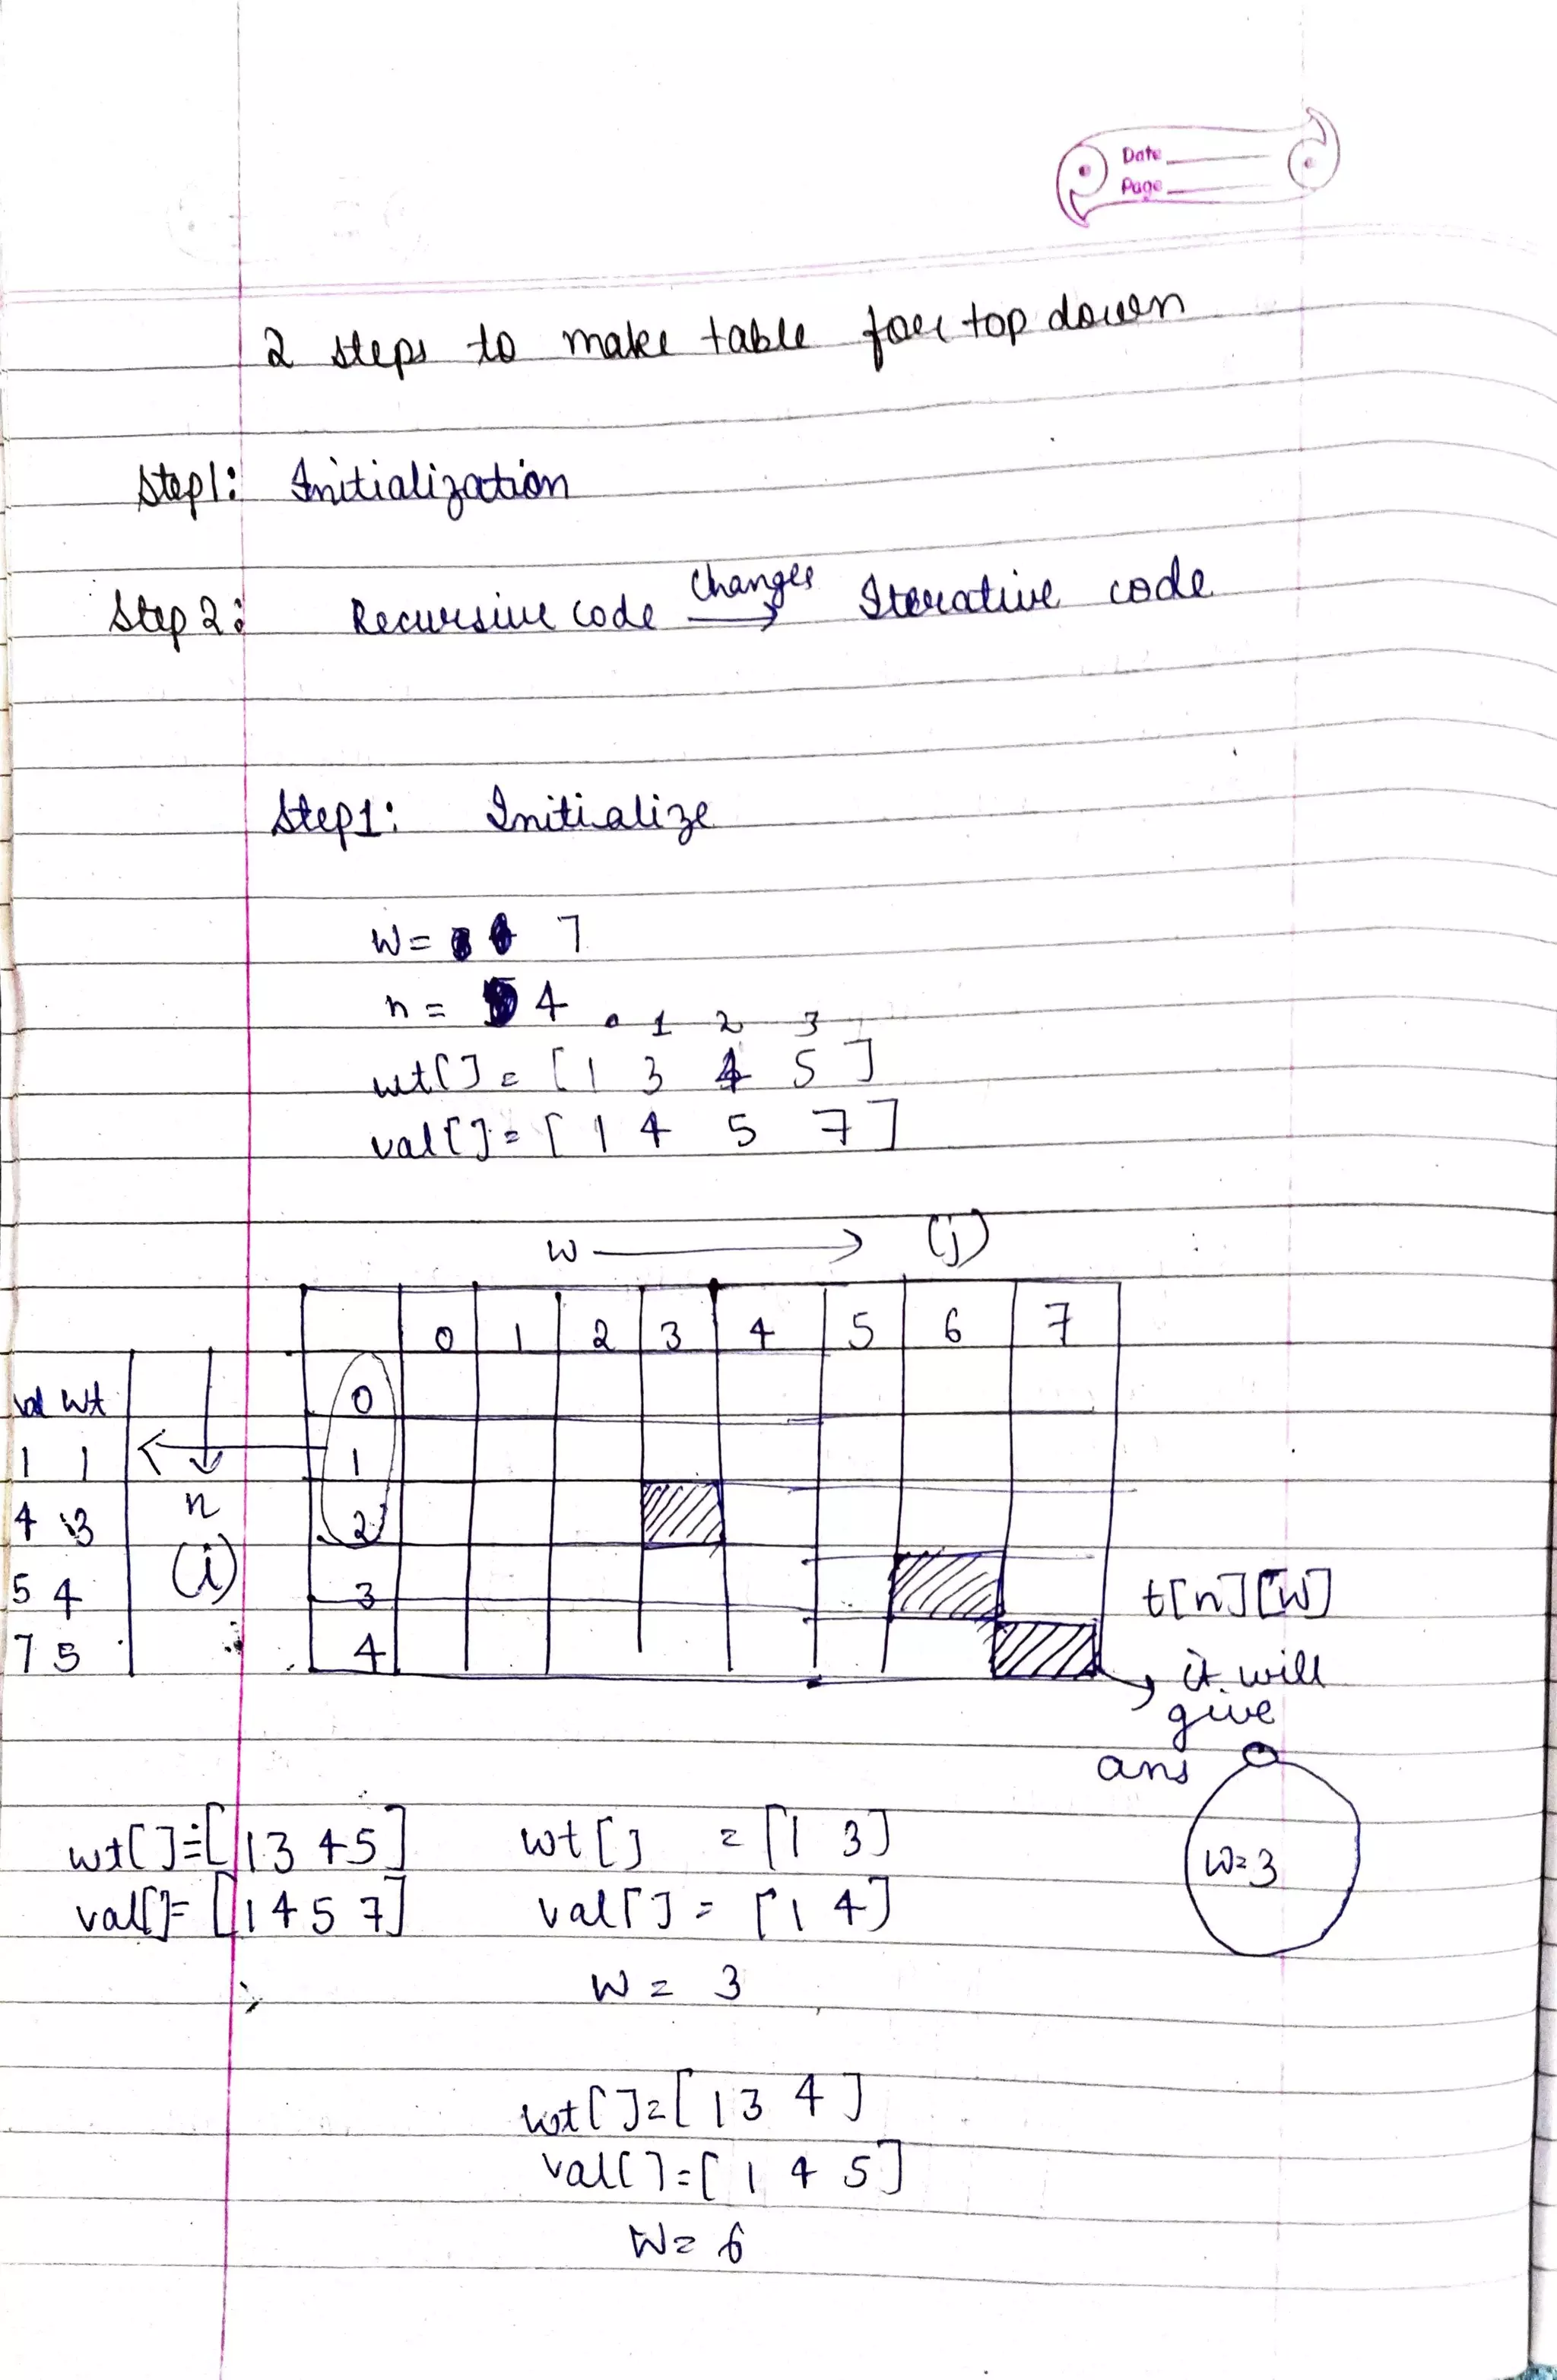 Date
Page
2 steps to make table for top down
Step1: Initialization
Step 2: Recursive code changes → Iterative code
Step1: Initialize
W= 7
n = 4
0 1 2 3
wt[] = [1 3 4 5]
val[] = [1 4 5 7]
W → (j)
0 1 2 3 4 5 6 7
val wt 0
1 1 1
4 3 n 2
5 4 (i) 3 t[n][W]
7 5 4 → it will
give
ans
wt[] = [1 3 4 5] wt[] = [1 3] W=3
val[]= [1 4 5 7] val[] = [1 4]
W = 3
wt[]=[1 3 4]
val[]=[1 4 5]
W= 6